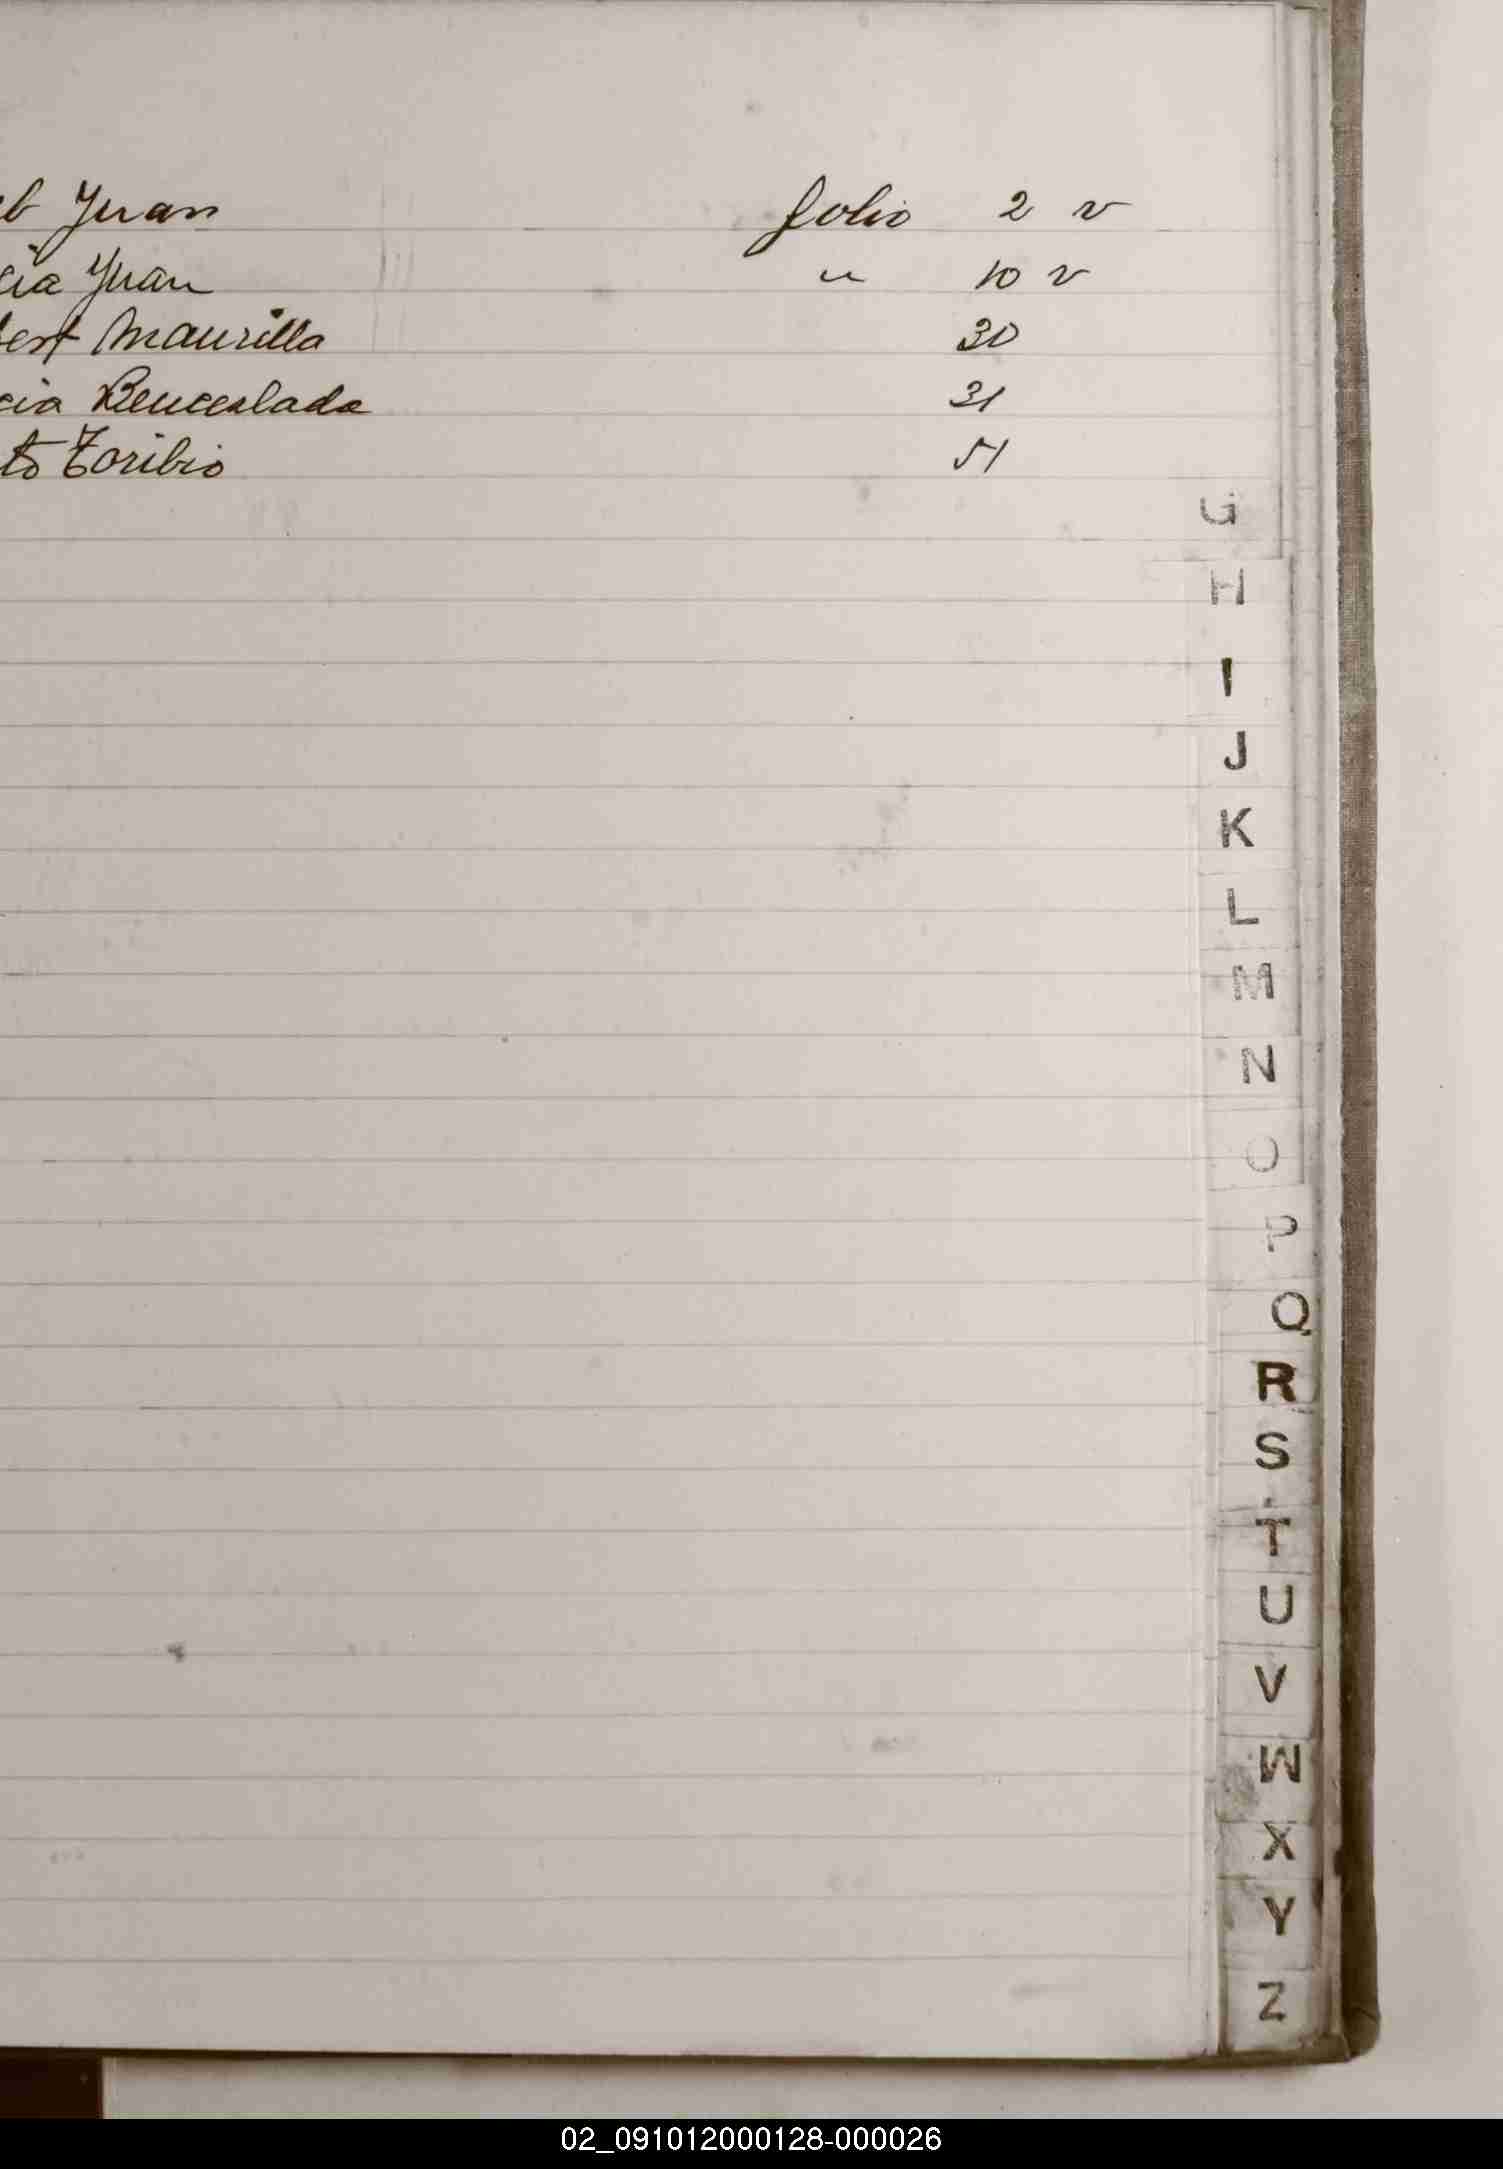 eb Juan folio 2 v
cia Juan " 10 v
bert Maurilla 30
cia Benceslada 31
to Toribio 51
G
H
I
J
K
L
M
N
O
P
Q
R
S
T
U
V
W
X
Y
Z
02_091012000128-000026